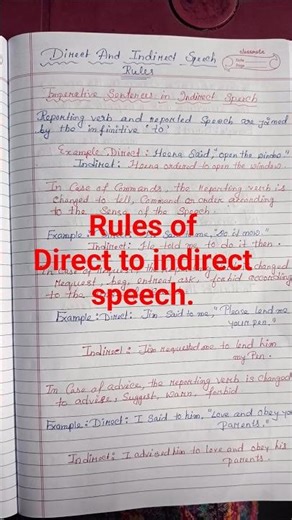 Direct And Indirect Speech
Rules
classmate
Date
Page
Imperative Sentences in Indirect Speech
Reporting verb and reported Speech are joined
by the infinitive "to"
Example: Direct: Heena Said, "open the window."
Indirect: Heena ordered to open the window.
In Case of Commands the reporting verb is
changed to tell, Command or order according
to the Sense of the Speech.
Example: me, "Do it now."
Indirect: He told me to do it then.
Rules of
Direct to indirect
speech.
In case of request, the changed
Request, beg, entreat, ask, forbid according
to the
Example: Direct: Jim Said to me, "Please lend me
your pen."
Indirect: Jim requested me to lend him
my Pen.
In Case of advice, the reporting verb is changed
to advise, Suggest, warn, forbid
Example: Direct: I Said to him, "Love and Obey your
Parents."
Indirect: I advised him to love and obey his
Parents.